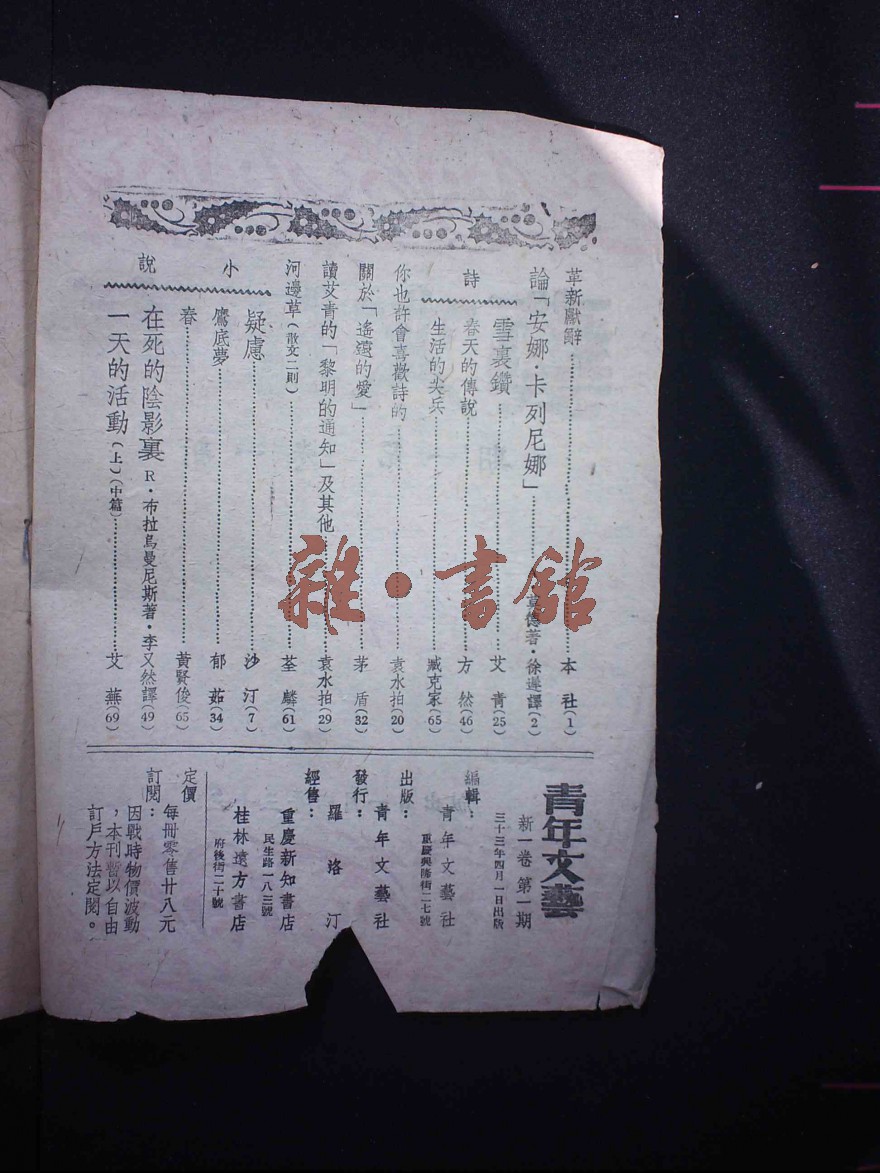 革新獻辭 本社(1)
論「安娜·卡列尼娜」 著·徐遲譯(2)
詩
雪裏鑽 艾青(25)
春天的傳說 方然(46)
生活的尖兵 臧克家(65)
你也許會喜歡詩的 袁水拍(20)
關於「遙遠的愛」 茅盾(32)
讀艾青的「黎明的通知」及其他 袁水拍(29)
河邊草(散文二則) 荃麟(61)
小說
疑慮 沙汀(7)
鷹底夢 郁茹(34)
春 黃賢俊(65)
在死的陰影裏 R·布拉烏曼尼斯著·李又然譯(49)
一天的活動(上)(中篇) 艾蕪(69)
青年文藝
新一卷第一期
三十三年四月一日出版
編輯:
青年文藝社
重慶興隆街二七號
出版:
青年文藝社
發行:
羅洛汀
經售:
重慶新知書店
民生路一八三號
桂林遠方書店
府後街二十號
定價
每冊零售廿八元
訂閱:
因戰時物價波動
,本刊暫以自由
訂戶方法定閱。
雜·書館